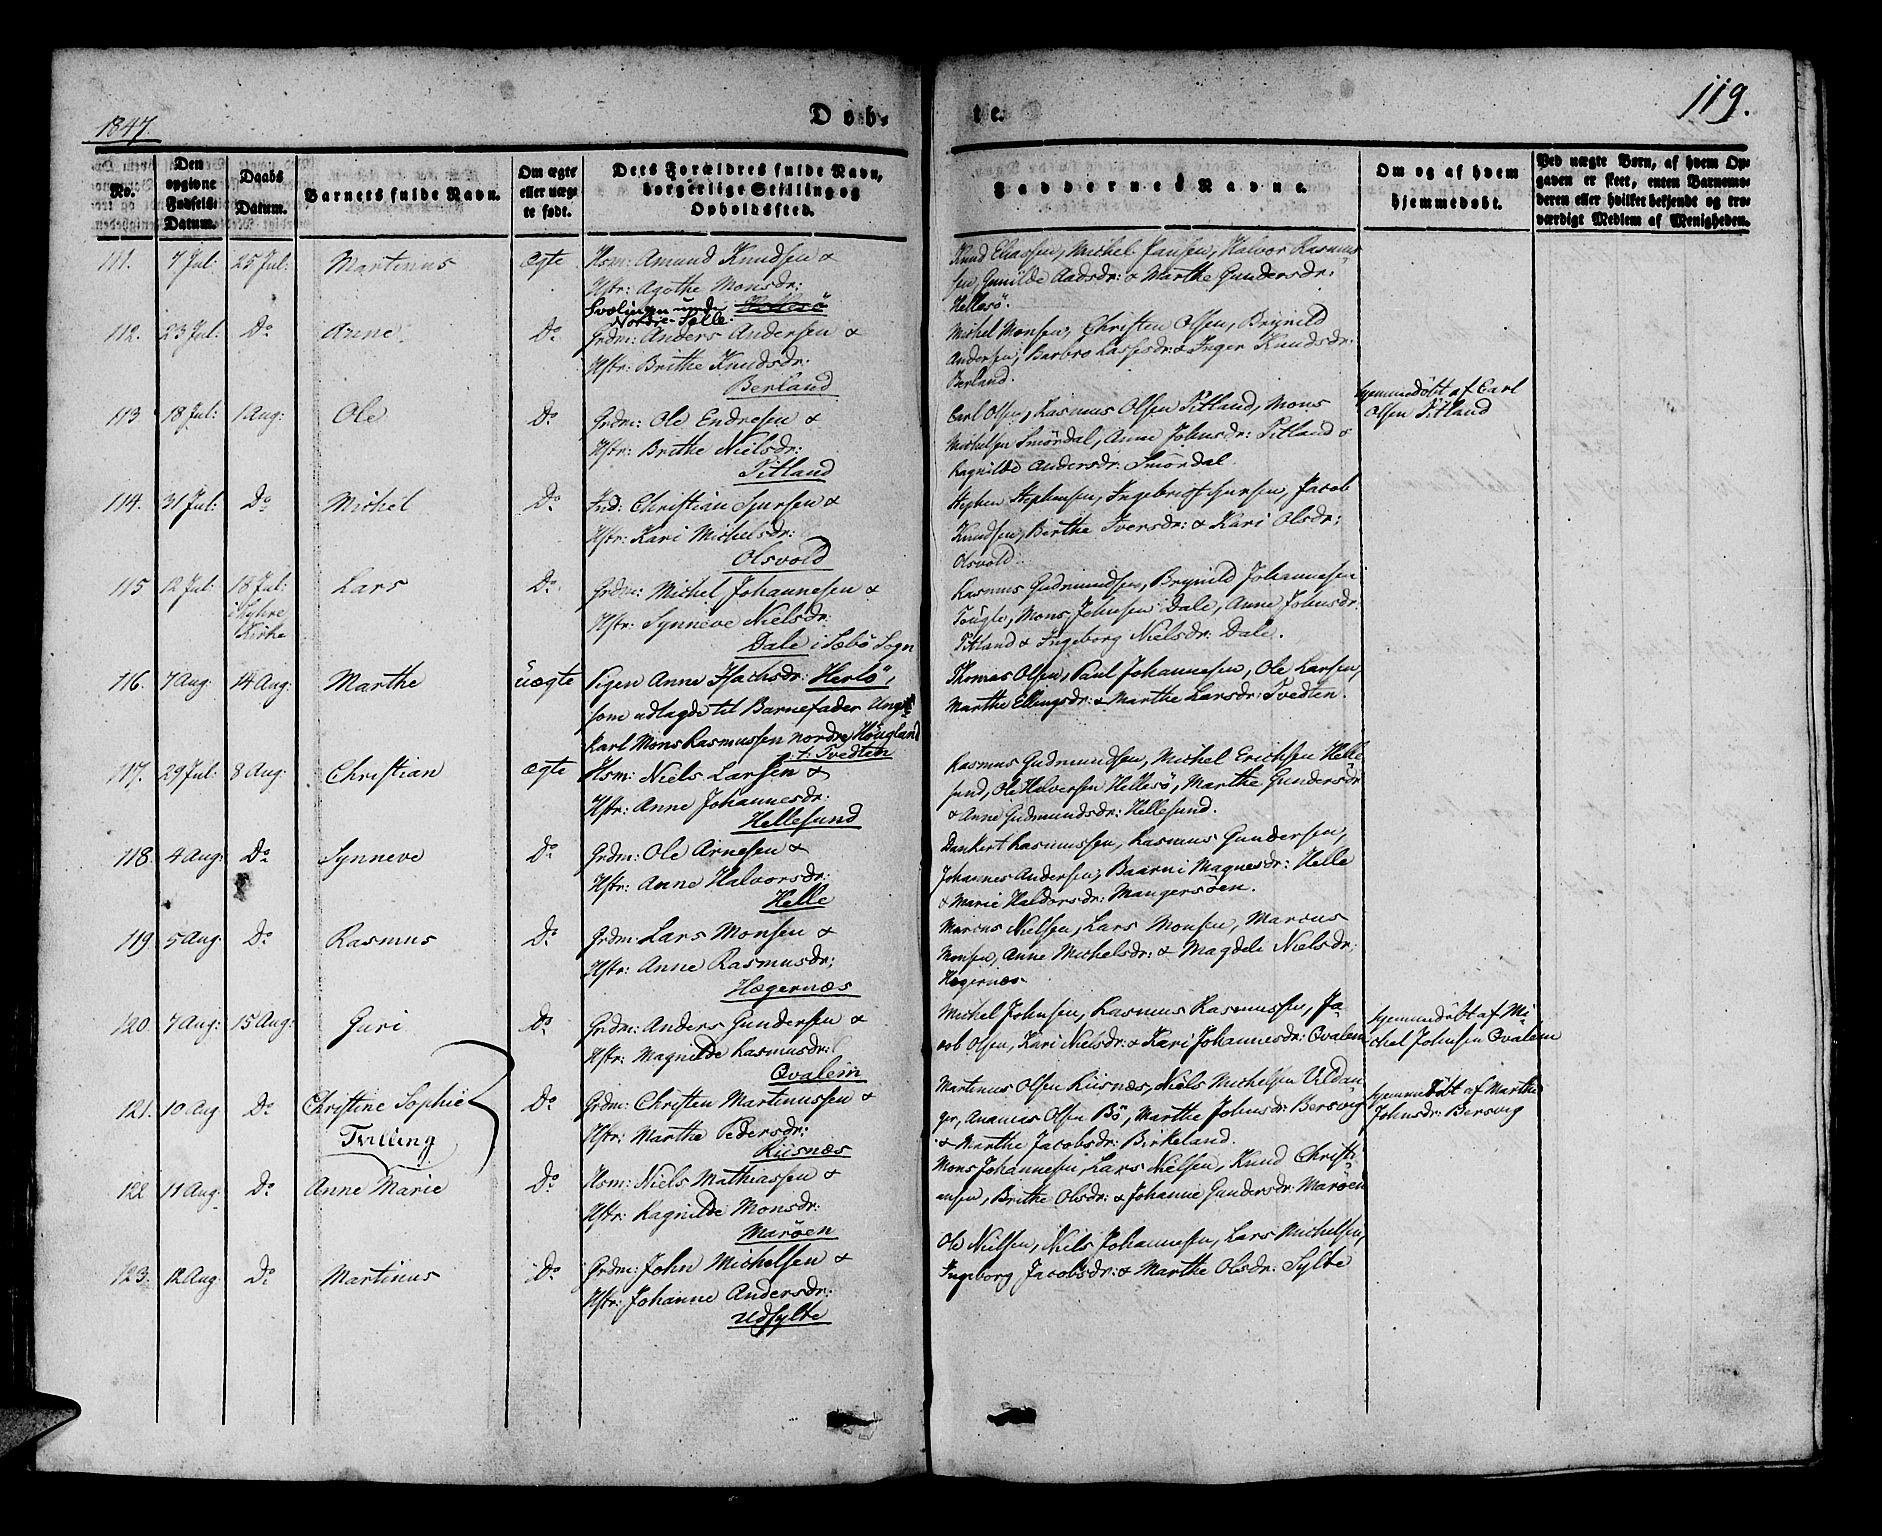 1847.
Døb-
te.
119.
No.
Den opgivne Fødsels-Datum.
Daabs Datum.
Barnets fulde Navn.
Om ægte eller uægte født.
Dets Forældres fulde Navn, borgerlige Stilling og Opholdssted.
Faddernes Navne.
Om og af hvem hjemmedøbt.
Ved uægte Børn, af hvem Opgaven er skeet, enten Barnemoderen eller hvilket bekjendt og troværdigt Medlem af Menigheden.
111. 7 Jul: 25 Jul: Martinus ægte Hsm: Amund Knudsen &
Hstr: Agathe Monsdr:
Svolingen under Hellesö
Nordre-Helle.
Knud Eliassen, Michel Hansen, Halvor Rasmus
sen, Gunilde Aadsdr: & Marthe Gundersdr:
Hellesö.
112. 23 Jul: Do Anne. Do Grdm: Anders Andersen &
Hstr: Brithe Knudsdr:
Berland
Michel Monsen, Christen Olsen, Brynild
Andersen, Barbro Lassesdr: & Inger Knudsdr:
Berland.
113 18 Jul: 1 Aug: Ole Do Grdm: Ole Endresen &
Hstr: Brithe Nielsdr:
Titland
Carl Olsen, Rasmus Olsen Titland, Mons
Michelsen Smördal, Anne Johnsdr: Titland &
Ragnilde Andersdr: Smördal.
hjemmedöbt af Carl
Olsen Titland
114. 31 Jul: Do Michel Do Hsm: Christian Sjursen &
Hstr: Kari Michelsdr:
Olsvold
Stephen Stephensen, Ingebrigt Sjursen, Jacob
Knudsen, Berthe Iversdr: & Kari Olsdr:
Olsvold.
115 12 Jul: 18 Jul: Lars Do Grdm: Michel Johannesen &
i Myhre
Kirke
Hstr: Synneve Nielsdr:
Dale i Sæbö Sogn
Rasmus Gudmundsen, Brynild Johannesen
Tougle, Mons Johnsen Dale, Anne Johnsdr:
Titland & Ingeborg Nielsdr: Dale.
116. 7 Aug 14 Aug: Marthe uægte Pigen Anne Isachsdr: Herlö,
som udlagde til Barnefader Ung-
karl Mons Rasmussen nordre Höugland
t. Tvedten
Thomas Olsen, Paul Johannesen, Ole Larsen,
Marthe Ellingsdr: & Marthe Larsdr: Tvedten.
117. 29 Jul: 8 Aug: Christian ægte Hsm: Niels Larsen &
Hstr: Anne Johannesdr:
Hellesund
Rasmus Gudmundsen, Michel Erichsen Helle
sund, Ole Halversen Hellesö, Marthe Gundersdr:
& Anne Gudmundsdr: Hellesund.
118. 4 Aug: Do Synneve Do Grdm: Ole Arnesen &
Hstr: Anne Halvorsdr:
Helle
Dankert Rasmussen, Rasmus Gundersen,
Johannes Andersen, Baarni Magnesdr: Helle
& Marie Haldorsdr: Mangersöen.
119 5 Aug: Do Rasmus Do Grdm: Lars Monsen &
Hstr: Anne Rasmusdr:
Hægernæs
Marcus Nielsen, Lars Monsen, Marcus
Monsen, Anne Michelsdr: & Magdele Nielsdr:
Hegernæs
120 7 Aug: 15 Aug: Guri Do Grdm: Anders Gundersen &
Hstr: Magnilde Rasmusdr:
Qvalem
Michel Johnsen, Rasmus Rasmussen, Ja-
cob Olsen, Kari Nielsdr: & Kari Johannesdr: Qvalem
hjemmedöbt af Mi-
chel Johnsen Qvalem
121. 10 Aug Do Christine Sophie Do Grdm: Christen Martinussen &
Tvilling
Hstr: Marthe Pedersdr:
Riisnæs
Martinus Olsen Riisnæs, Niels Michelsen Uldan
ger, Ananias Olsen Bö, Marthe Johnsdr: Bersvig
& Marthe Jacobsdr: Birkeland.
hjemmedöbt af Marthe
Johnsdr: Bersvig
122 11 Aug: Do Anne Marie Do Hsm: Niels Mathiassen &
Hstr: Ragnilde Monsdr:
Maröen
Mons Johannesen, Lars Nielsen, Knud Christi-
ansen, Brithe Olsdr: & Johanne Gundersdr: Maröen
123. 12 Aug: Do Martinus Do Grdm: John Michelsen &
Hstr: Johanne Andersdr:
Udsylte
Ole Nielsen, Niels Johannesen, Lars Michelsen,
Ingeborg Jacobsdr: & Marthe Olsdr: Sylte